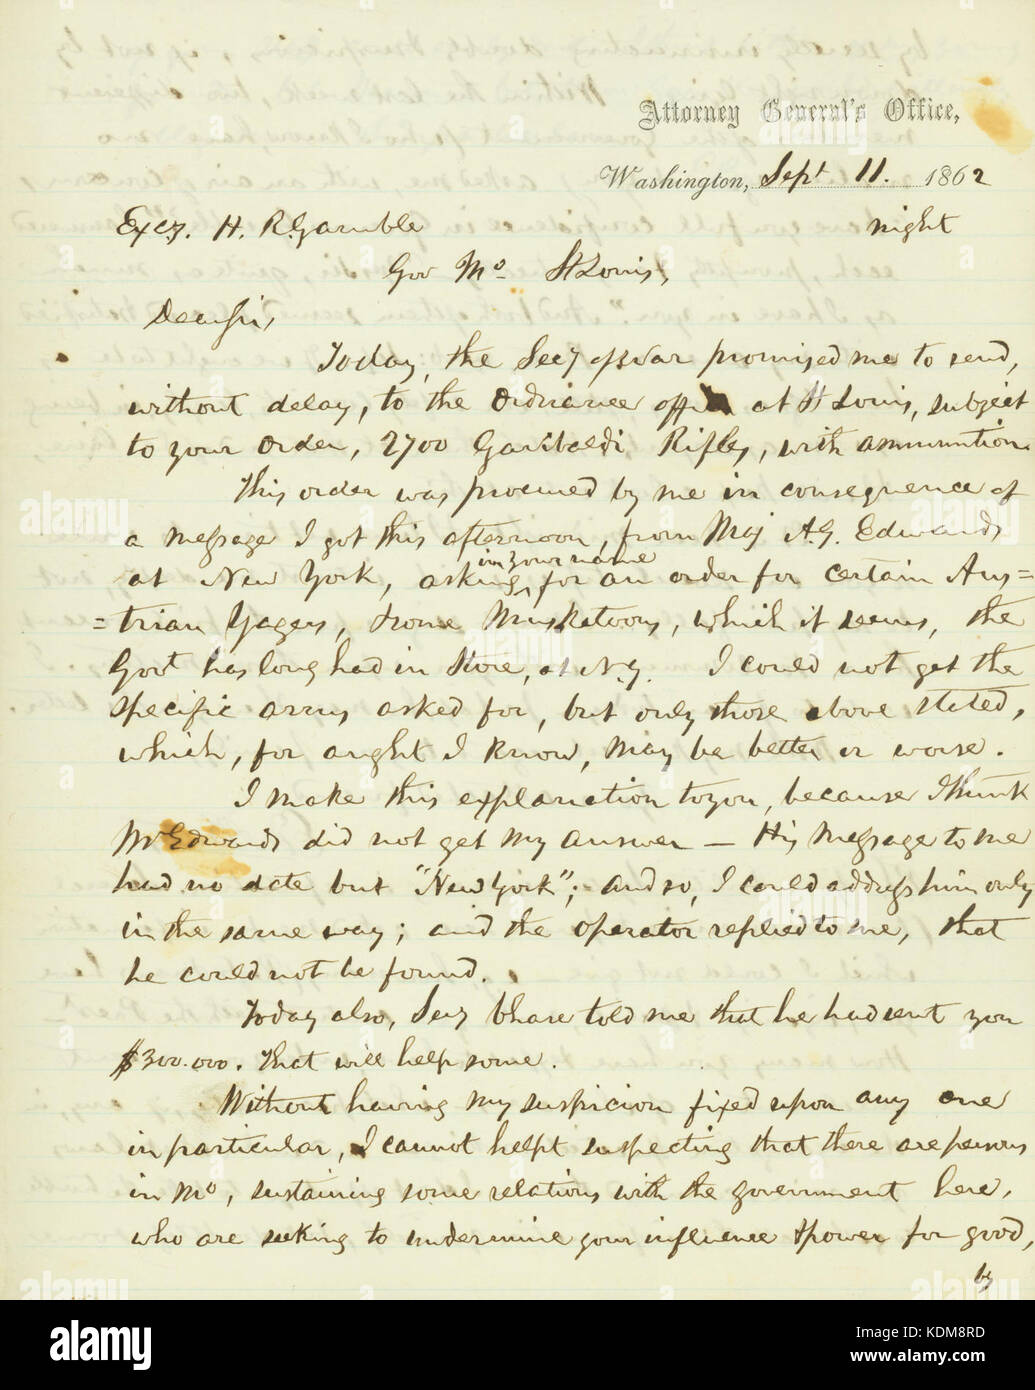 Attorney General's Office,
Washington, Sept 11. 1862
Excy. H. R. Gamble night
Gov Mo. St Louis,
Dear Sir,
Today, the Secy of War promised me to send,
without delay, to the Ordnance office at St Louis, subject
to your order, 2700 Garibaldi Rifles, with ammunition.
This order was procured by me in consequence of
a message I got this afternoon, from Maj A.G. Edwards
at New York, asking, in your name for an order for certain Aus=
=trian Yagers, & some Musketoons, which it seems, the
Govt has long had in Store, at N.Y. I could not get the
specific arms asked for, but only those above stated,
which, for aught I know, may be better or worse.
I make this explanation to you, because I think
Mr Edwards did not get my answer — His message to me
had no date but "New York"; and so, I could address him only
in the same way; and the operator replied to me, that
he could not be found.
Today also, Secy Chase told me that he had sent you
$300.000. That will help some.
Without having my suspicion fixed upon any one
in particular, I cannot help suspecting that there are persons
in Mo, sustaining some relations with the government here,
who are seeking to undermine your influence & power for good,
by
alamy
Image ID: KDM8RD
www.alamy.com